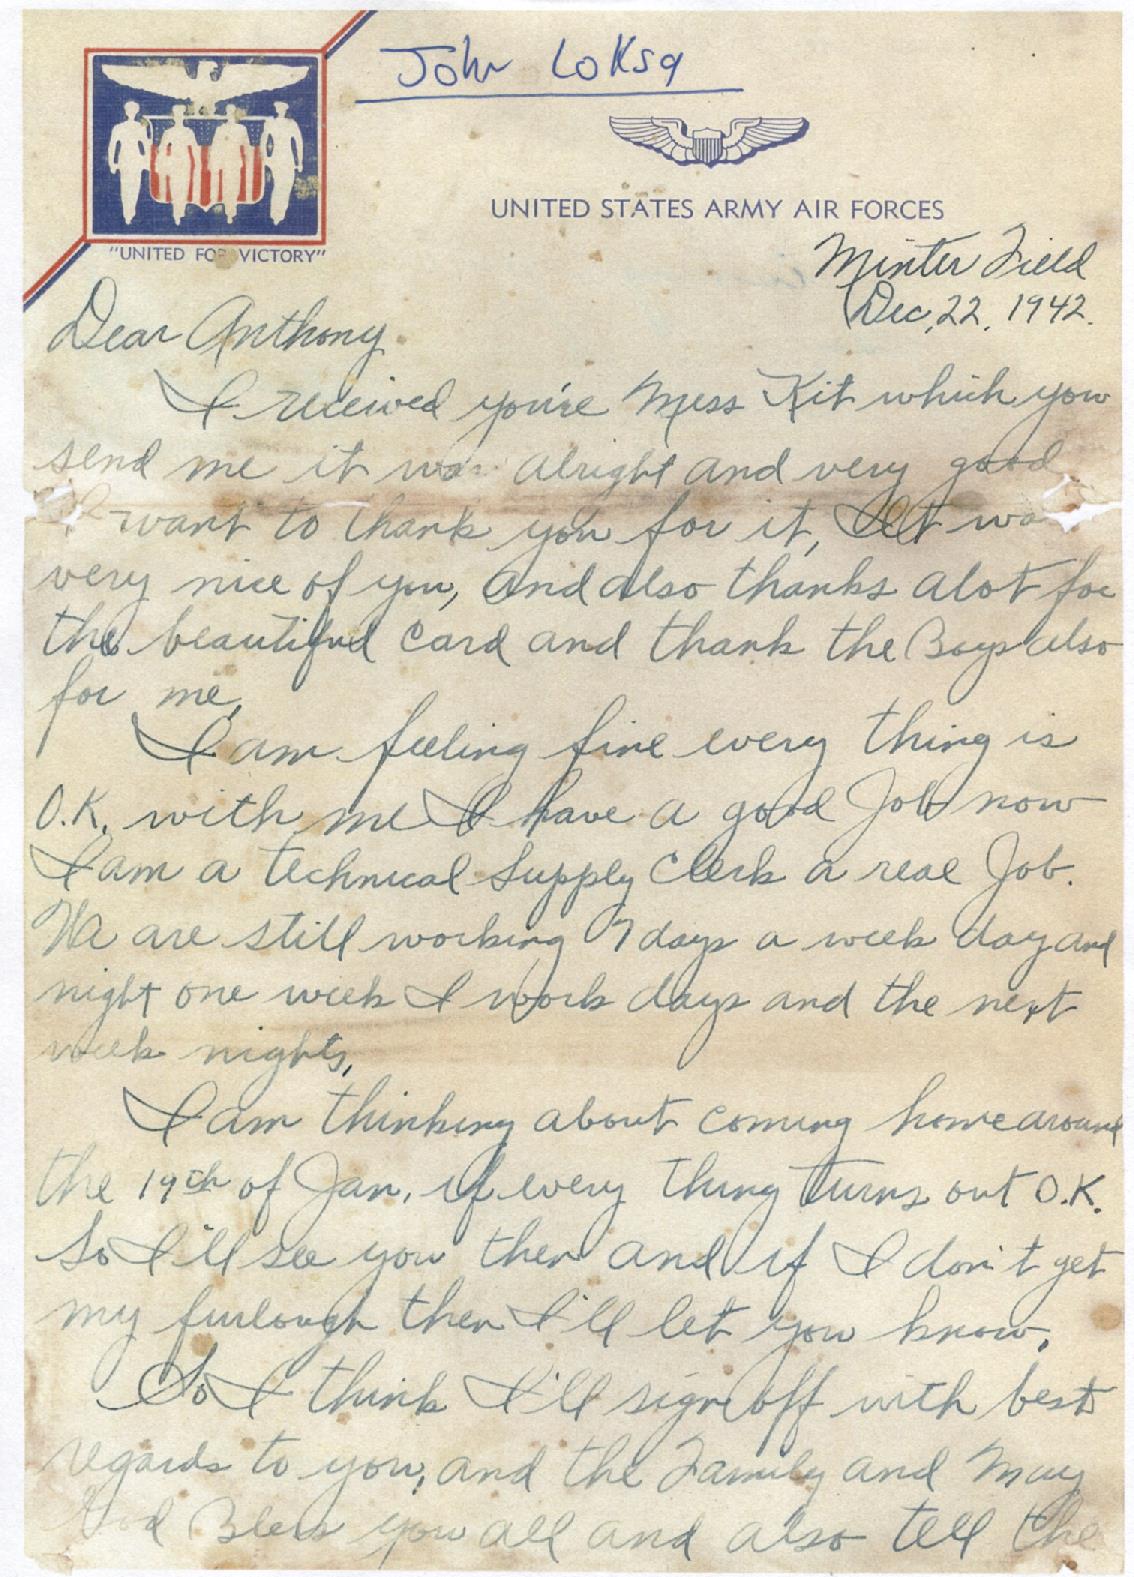 John Loksa
UNITED STATES ARMY AIR FORCES
"UNITED FOR VICTORY"
Minter Field
Dec, 22, 1942.
Dear Anthony.
I received you're Mess Kit which you
send me it was alright and very good
I want to thank you for it, It was
very nice of you, and also thanks alot for
the beautiful card and thank the Boys also
for me,
I am feeling fine every thing is
O.K. with me I have a good Job now
I am a technical supply clerk a real Job.
We are still working 7 days a week day and
night one week I work days and the next
week nights,
I am thinking about coming home around
the 19th of Jan, if every thing turns out O.K.
So I'll see you then and if I don't get
my furlough then I'll let you know,
So I think I'll sign off with best
regards to you, and the Family and May
God Bless you all and also tell the